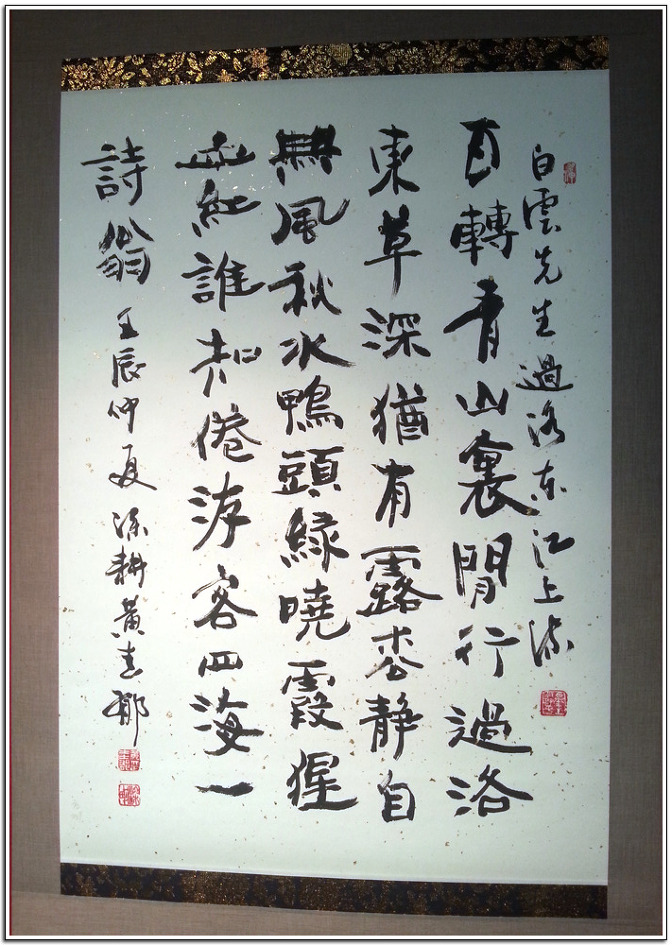 白雲先生過洛東江上流
百轉青山裏閒行過洛
東草深猶有露松靜自
無風秋水鴨頭綠曉霞猩
血紅誰知倦游客四海一
詩翁 壬辰仲夏 深耕黃